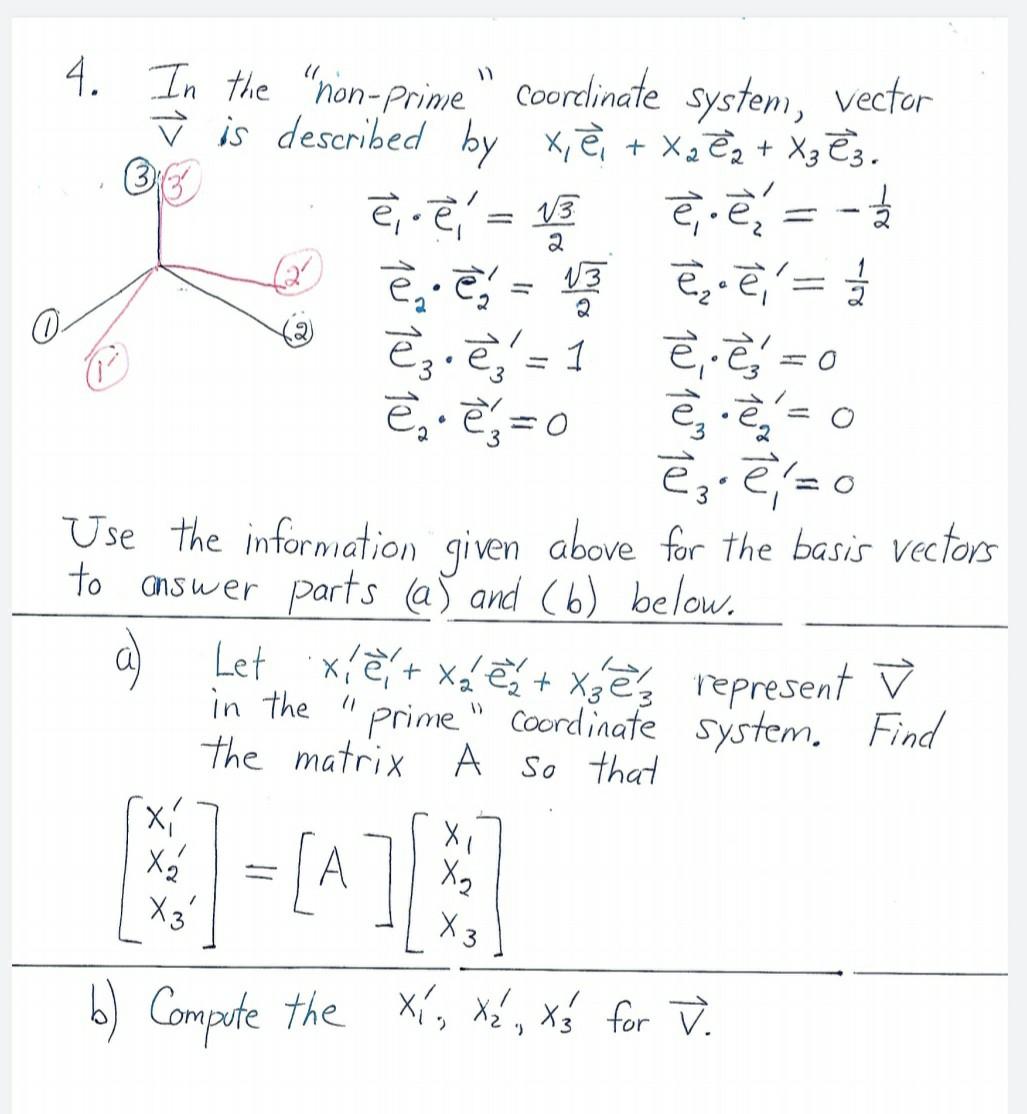 4. In the "non-prime" coordinate system, vector
v⃗ is described by x₁e⃗₁ + x₂e⃗₂ + x₃e⃗₃.
③ 3′
2′
①
②
1′
e⃗₁·e⃗₁′ = √3/2 e⃗₁·e⃗₂′ = -1/2
e⃗₂·e⃗₂′ = √3/2 e⃗₂·e⃗₁′ = 1/2
e⃗₃·e⃗₃′ = 1 e⃗₁·e⃗₃′ = 0
e⃗₂·e⃗₃′ = 0 e⃗₃·e⃗₂′ = 0
e⃗₃·e⃗₁′ = 0
Use the information given above for the basis vectors
to answer parts (a) and (b) below.
a) Let x₁′e⃗₁′ + x₂′e⃗₂′ + x₃′e⃗₃′ represent v⃗
in the "prime" coordinate system. Find
the matrix A so that
[x₁′ x₂′ x₃′] = [A] [x₁ x₂ x₃]
b) Compute the x₁′, x₂′, x₃′ for v⃗.